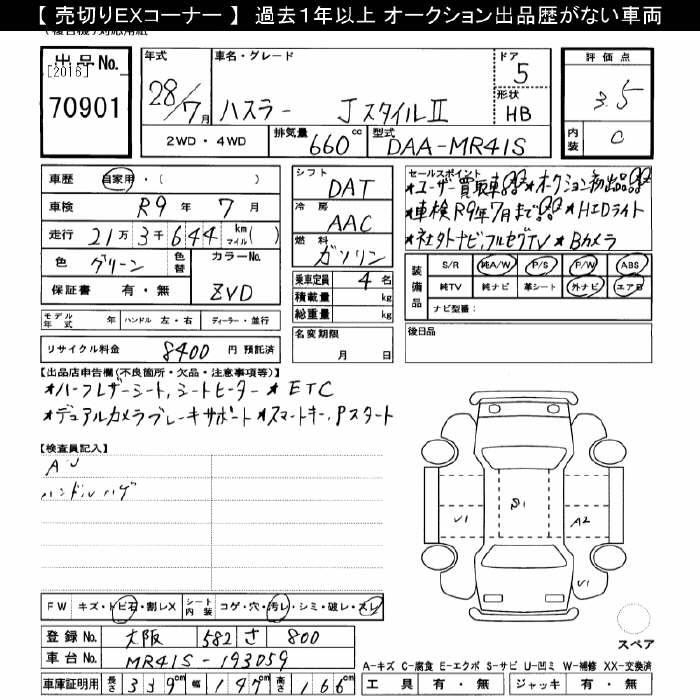 【 売切りEXコーナー 】 過去１年以上 オークション出品歴がない車両
出品No.
[2016]
70901
年式 28/7月
車名・グレード
ハスラー JスタイルⅡ
ドア 5
形状 HB
評価点
3.5
内装 C
2WD・4WD 排気量 660cc 型式 DAA-MR41S
車歴 自家用・( )
車検 R9年 7月
走行 21万3千644 km マイル( )
色 グリーン 色替 カラーNo. ZVD
保証書 有・無
モデル年式 年 ハンドル 左・右 ディーラー・並行
リサイクル料金 8400 円 預託済
シフト DAT
冷房 AAC
燃料 ガソリン
乗車定員 4名
積載量 kg
総重量 kg
名変期限 月 日
セールスポイント
★ユーザー買取車!! ★オークション初出品!!
★車検R9年7月まで!! ★HIDライト
★社外ナビ、フルセグTV ★Bカメラ
装備品 S/R 純A/W P/S P/W ABS
純TV 純ナビ 革シート 外ナビ エアB
ナビ型番：
後日品
【出品店申告欄(不良箇所・欠品・注意事項等)】
★ハーフレザーシート、シートヒーター ★ETC
★デュアルカメラブレーキサポート ★スマートキー、Pスタート
【検査員記入】
AU
ハンドルハゲ
U1 S1 A2
U1
スペア
FW キズ・トビ石・割レX シート内装 コゲ・穴・汚レ・シミ・破レ・スレ
登録No. 大阪 582 さ 800
車台No. MR41S-193059
車庫証明用 長さ 339cm 幅 147cm 高さ 166cm
A-キズ C-腐食 E-エクボ S-サビ U-凹ミ W-補修 XX-交換済
工具 有・無 ジャッキ 有・無